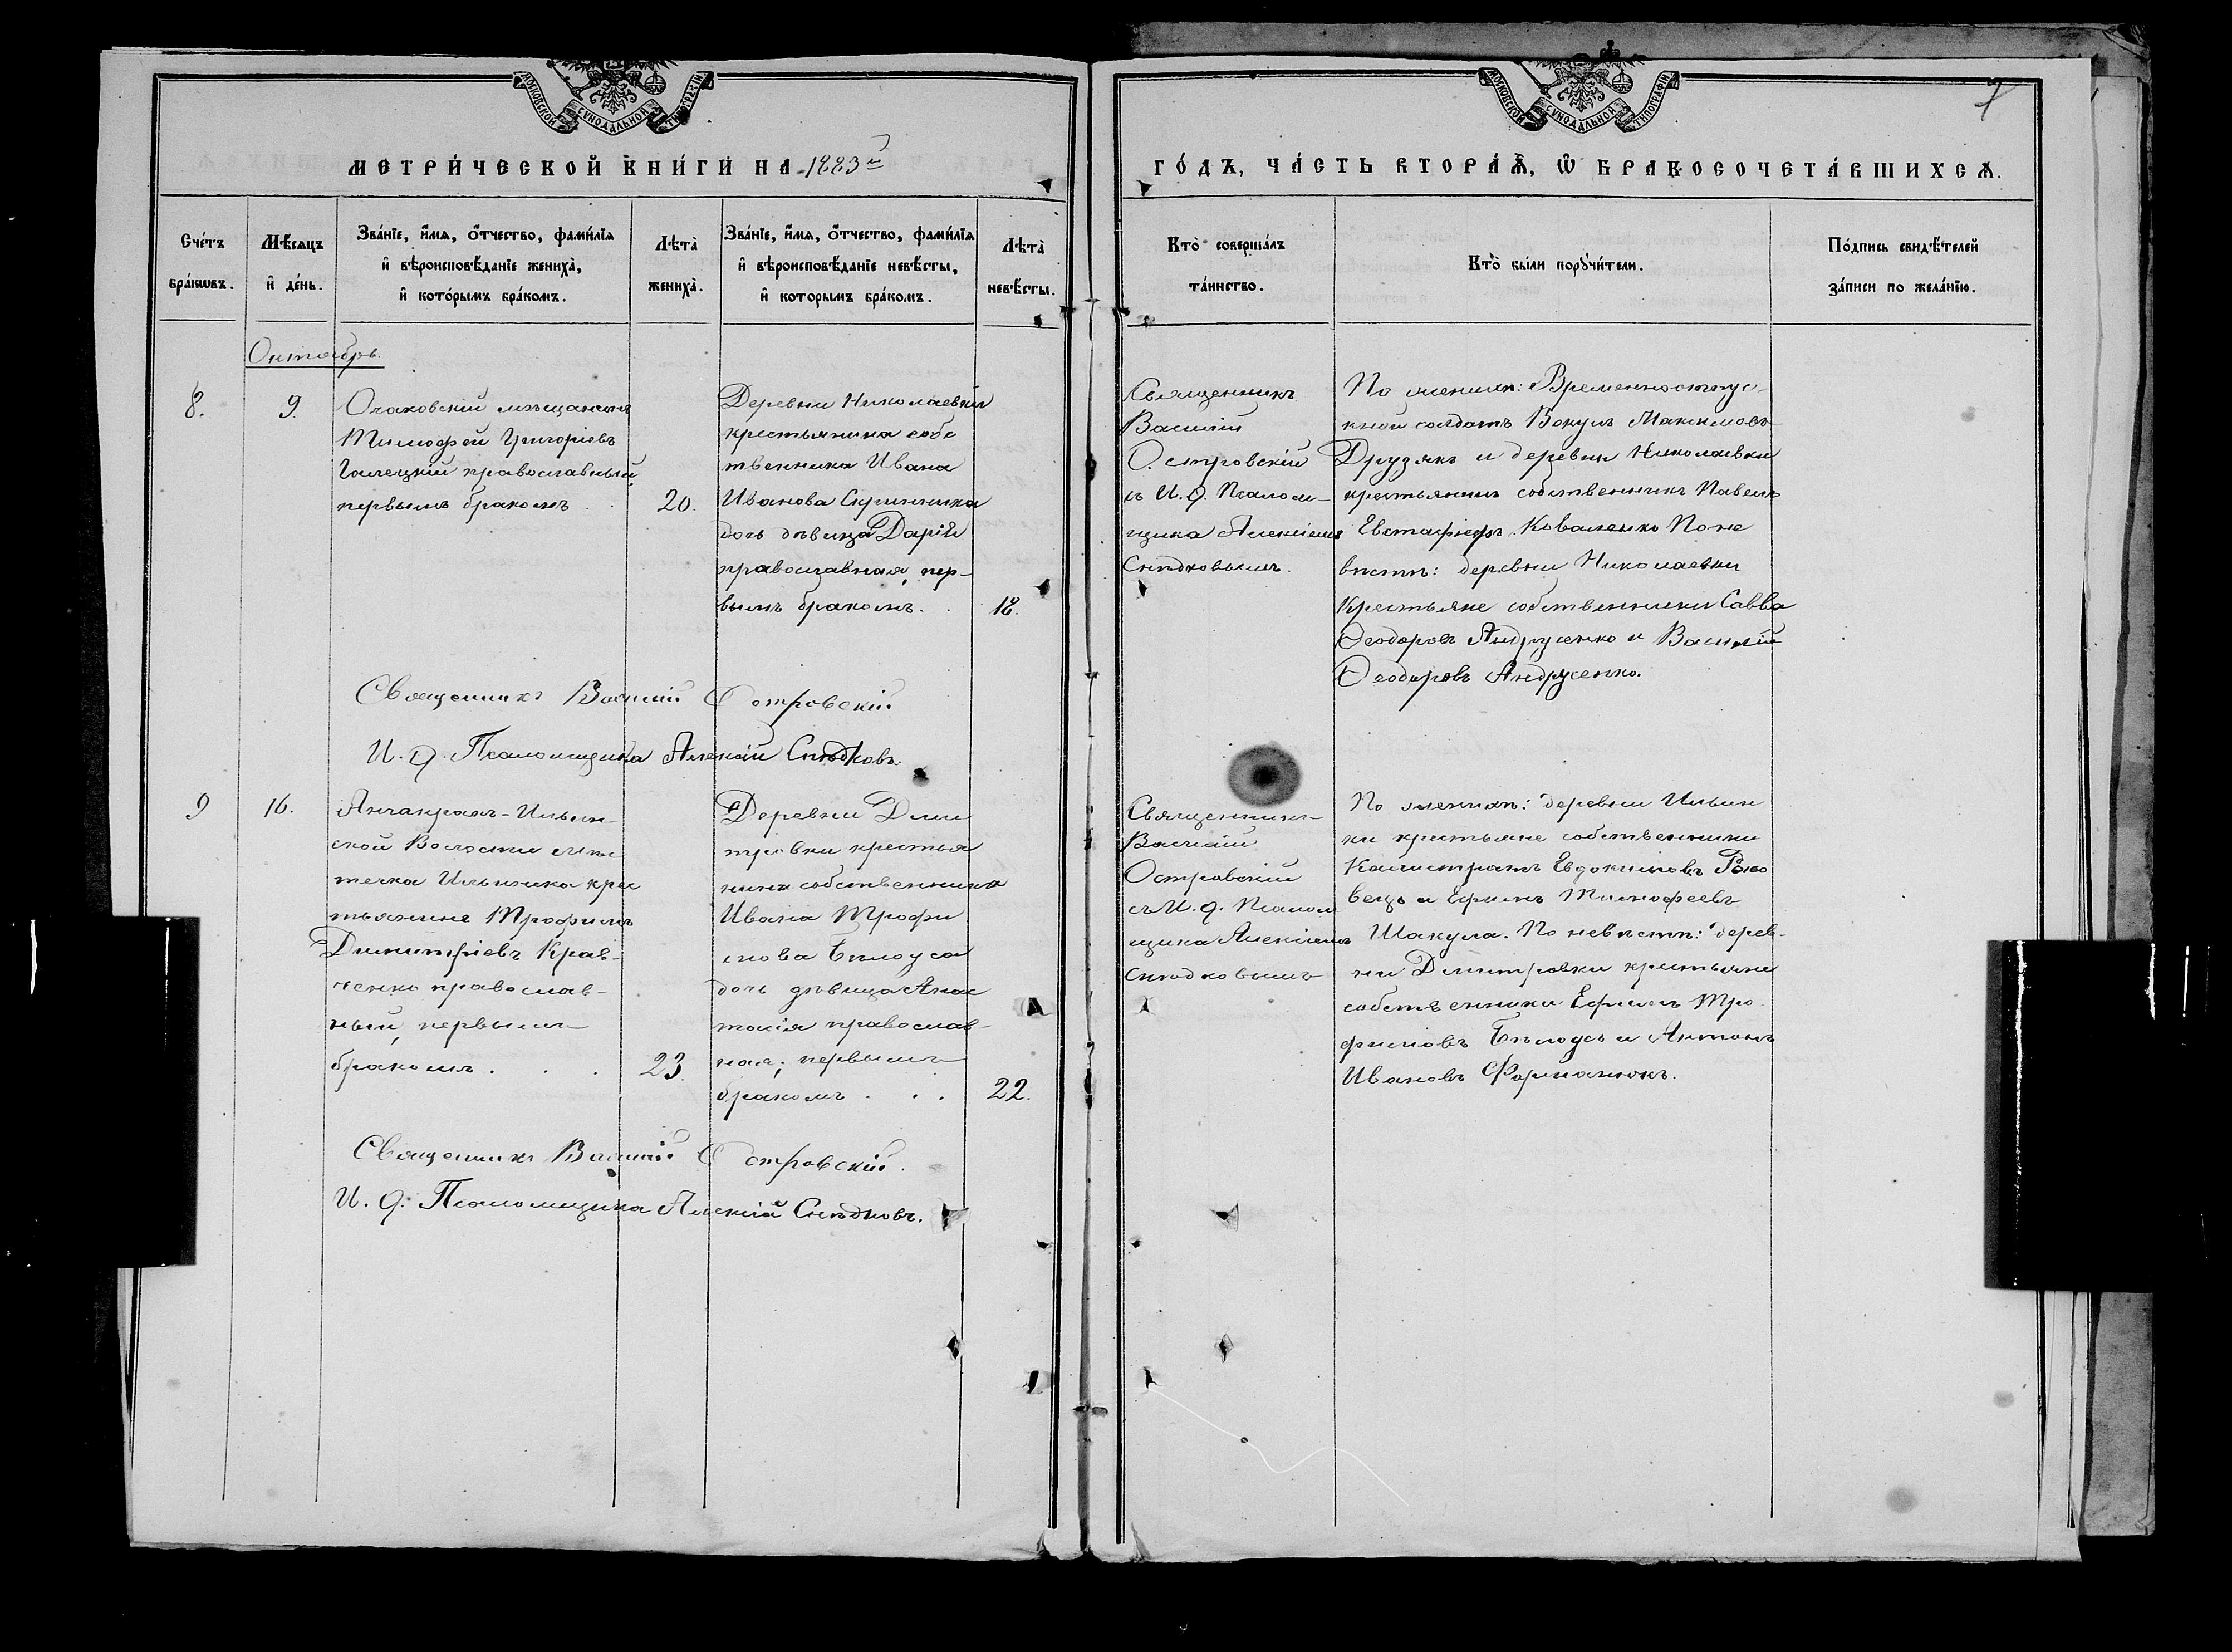 МОСКОВСКОЙ СѴНОДАЛЬНОЙ
МЕТРИ́ЧЕСКОЙ КНИ́ГИ НА 1883й
Сче́тъ бра́кѡвъ.
Мѣ́сяцъ и҆ де́нь.
Зва́нїе, и҆́мя, ѻ҆́тчество, фами́лїя и҆ вѣроисповѣ́данїе жениха̀, и҆ кото́рымъ бра́комъ.
Лѣта̀ жениха̀.
Зва́нїе, и҆́мя, ѻ҆́тчество, фами́лїя и҆ вѣроисповѣ́данїе невѣ́сты, и҆ которымъ бра́комъ.
Лѣта̀ невѣ́сты.
Октябрь.
8.
9.
Очаковскій мѣщанинъ
Тимофей Григоріевъ
Галецкій православный,
первымъ бракомъ
20.
Деревни Николаевки
крестьянина собс
твенника Ивана
Иванова Скрипника
дочь дѣвица Дарія
православная, пер-
вымъ бракомъ.
18.
Священникъ Василій Островскій
И. д. Псаломщика Алексій Снѣдковъ.
9
16.
Анчакрак-Ильин-
ской Волости мѣс
течка Ильинка крес
тьянинъ Трофимъ
Димитріевъ Крав-
ченко православ-
ный, первымъ
бракомъ.
23.
Деревни Дми
тровки крестья
нина собственника
Ивана Трофи
мова Бѣлоуса
дочь дѣвица Анас
тасія православ-
ная; первымъ
бракомъ
22.
Священникъ Василій Островскій.
И. д. Псаломщика Алексій Снѣдковъ.
МОСКОВСКОЙ СѴНОДАЛЬНОЙ ТИПОГРАФІИ
7
ГО́ДЪ, ЧА́СТЬ ВТОРА́Ѧ, Ѡ҆ БРАКОСОЧЕТА́ВШИХСѦ.
Кто̀ соверша́лъ та́инство.
Кто̀ были порꙋчи́тели.
По́дпись свидѣ́телей за́писи по жела́нїю.
Священникъ
Василій
Островскій
съ И. д. Псалом-
щика Алексіемъ
Снѣдковымъ.
По женихѣ: Временноотпус-
кной солдатъ Вокулъ Максимовъ
Друзякъ и деревни Николаевки
крестьянинъ собственникъ Павелъ
Евстафіевъ Коваленко По не
вѣстѣ: деревни Николаевки
Крестьяне собственники Савва
Ѳеодоровъ Андрусенко и Василій
Ѳеодоровъ Андрусенко.
Священникъ
Василій
Островскій
съ И. д. Псалом
щика Алексіемъ
Снѣдковымъ
По женихѣ: деревни Ильин
ки крестьяне собственники
Калистратъ Евдокимовъ
и Ефимъ Тимофеевъ
Шакула. По невѣстѣ: дерев-
ни Дмитровки крестьяне
собственники Ефимъ Тро
фимовъ Бѣлоусъ и Антонъ
Ивановъ Форманюкъ.